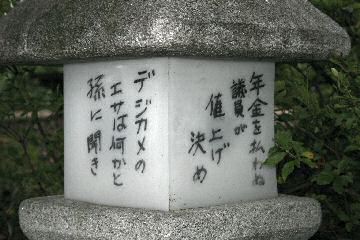 年金を払わぬ
議員が
値上げ
決め
デジカメの
エサは何かと
孫に聞き